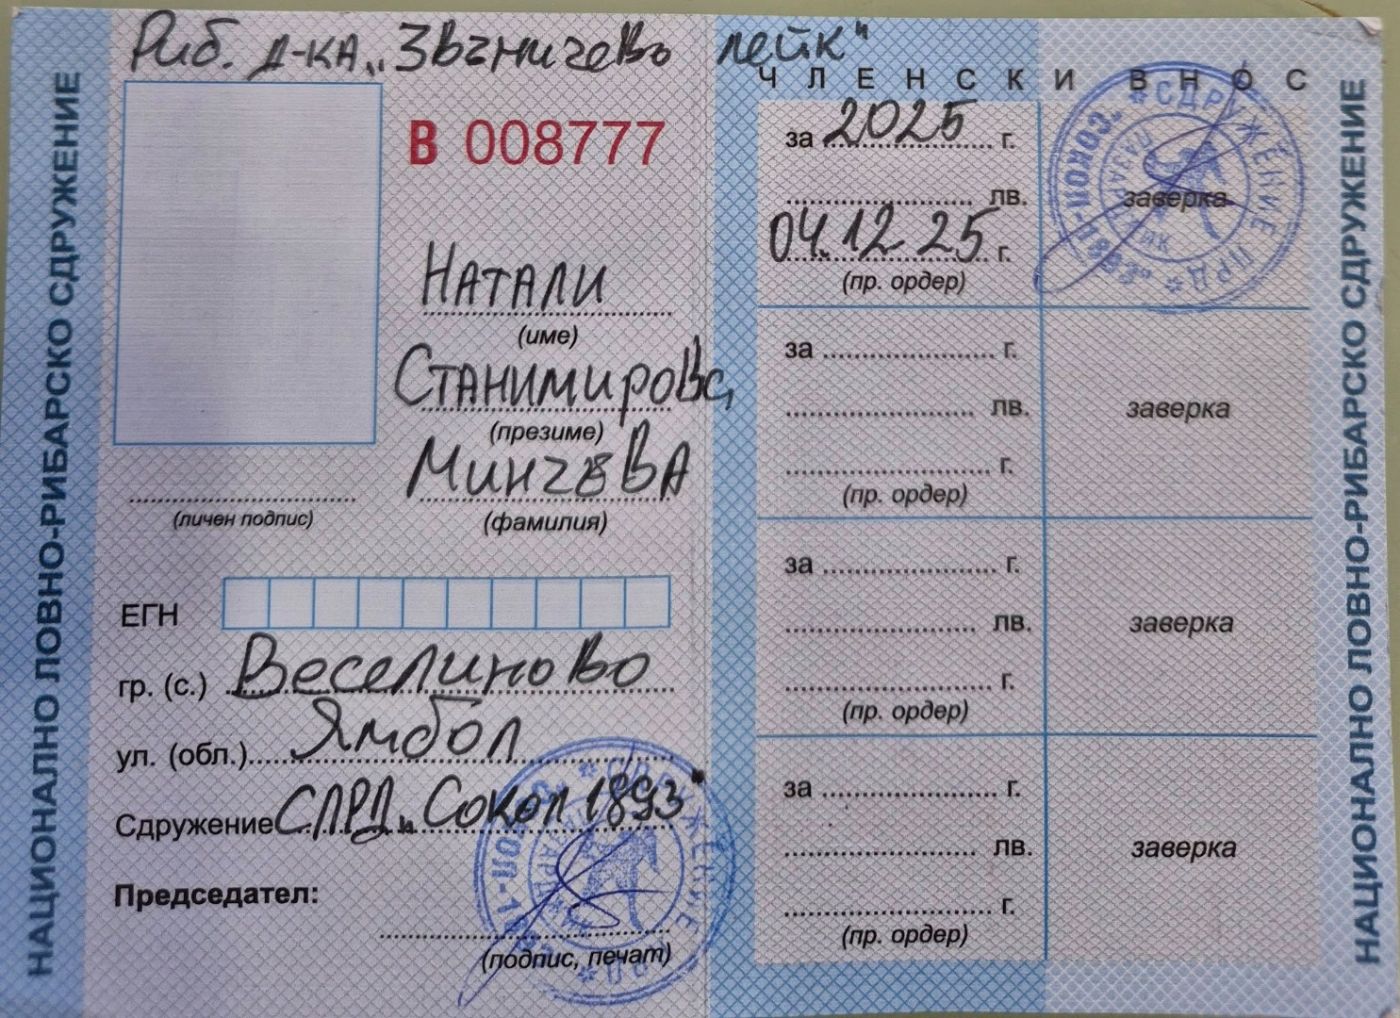 Риб. д-ка „Звъничево лейк"
НАЦИОНАЛНО ЛОВНО-РИБАРСКО СДРУЖЕНИЕ
В 008777
Натали
(име)
Станимирова
(презиме)
Минчева
(фамилия)
(личен подпис)
ЕГН
гр. (с.) Веселиново
ул. (обл.) Ямбол
Сдружение СЛРД „Сокол 1893"
Председател:
(подпис, печат)
ЧЛЕНСКИ ВНОС
за 2025 г.
лв.
заверка
04.12.25 г.
(пр. ордер)
за г.
лв.
заверка
г.
(пр. ордер)
за г.
лв.
заверка
г.
(пр. ордер)
за г.
лв.
заверка
г.
(пр. ордер)
НАЦИОНАЛНО ЛОВНО-РИБАРСКО СДРУЖЕНИЕ